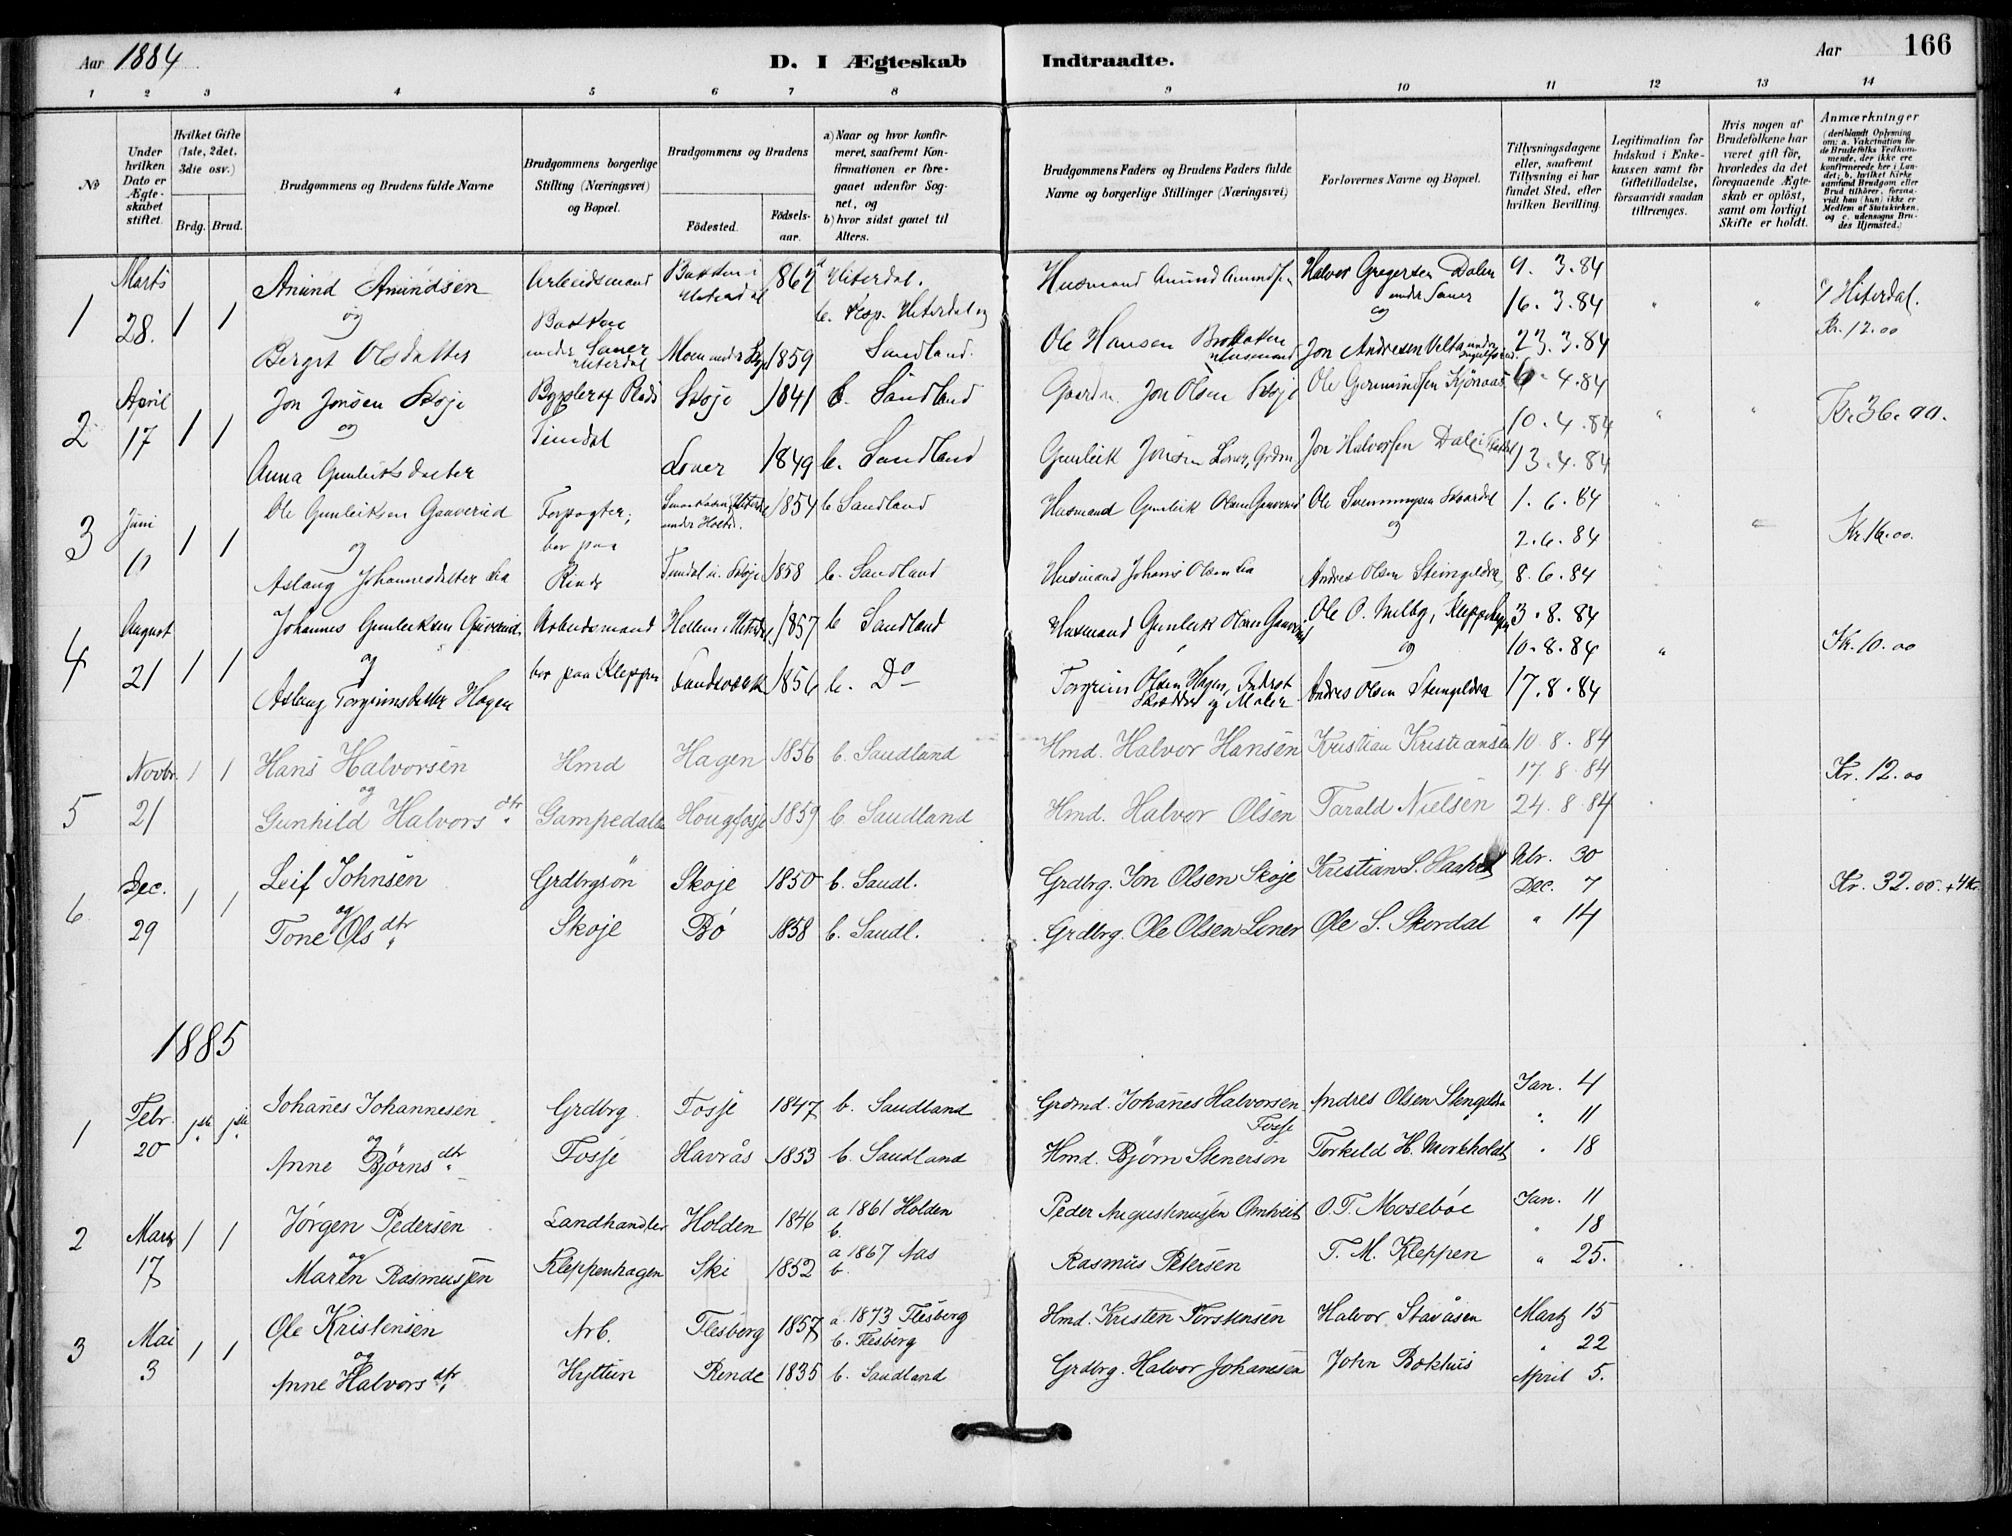 Aar 1884
D. I Ægteskab
Indtraadte.
Aar
166
1 2 3 4 5 6 7 8 9 10 11 12 13 14
No
Under hvilken Dato er Ægteskabet stiftet.
Hvilket Gifte (1ste, 2det, 3die osv.)
Brdg. Brud.
Brudgommens og Brudens fulde Navne
Brudgommens borgerlige Stilling (Næringsvei) og Bopæl.
Brudgommens og Brudens
Fødested.
Fødselsaar.
a) Naar og hvor konfirmeret, saafremt Konfirmationen er foregaaet udenfor Sognet, og
b) hvor sidst gaaet til Alters.
Brudgommens Faders og Brudens Faders fulde Navne og borgerlige Stillinger (Næringsvei)
Forlovernes Navne og Bopæl.
Tillysningsdagene eller, saafremt Tillysning ei har fundet Sted, efter hvilken Bevilling.
Legitimation for Indskud i Enkekassen samt for Giftetilladelse, forsaavidt saadan tiltrænges.
Hvis nogen af Brudefolkene har været gift før, hvorledes da det foregaaende Ægteskab er opløst, samt om lovligt Skifte er holdt.
Anmærkninger
(deriblandt Oplysning om: a. Vakcination for de Brudefolks Vedkommende, der ikke ere konfirmerede her i Landet; b. hvilket Kirkesamfund Brudgom eller Brud tilhører, forsaavidt han (hun) ikke er Medlem af Statskirken, og c. udensogns Brudes Hjemsted.)
1 Marts 28. 1 1 Anund Anundsen og Arbeidsmand Bakken i Hiterdal Hiterdal. Husmand Anund Halvor Gregersen Dalen under Saner og 9. 3. 84 16. 3. 84 c/ Hiterdal. Kr. 12.00
Bergit Olsdatter Bakken under Saner Hiterdal 1859 b. Resp. Hiterdal og Sandland. Ole Hansen Husmand Jon Andresen 23. 3. 84
2 April 17 1 1 Jon Jonsen Skoje og Tindal Skoje 1841 b. Sandland Gaardm. Jon Olsen Skoje Ole Kjønaas 6. 4. 84 10. 4. 84 Kr. 36.00.
Anna Gunleiksdatter Loner 1849 b. Sandland Gunleik Jonsen Loner, Jon Halvorsen Dale 13. 4. 84
3 Juni 11 1 1 Ole Gunleiksen Gauverud og Forpagter, under 1854 b Sandland Husmand Gunleik Olsen Gauverud Ole og 1. 6. 84 2. 6. 84 Kr 16.00.
Aslaug Johannesdatter Lia bor paa Rinde Tindal u. Skoje 1858 b. Sandland Husmand Johanes Olsen Lia Andres Olsen Steingildra 8. 6. 84
4 August 21 1 1 Johannes Gunleiksen Gauverud og Arbeidsmand Hellem i Hiterdal 1857 b Sandland Husmand Gunleik Olsen Gauverud Ole O. Melby, og 3. 8. 84 10. 8. 84 Kr. 10.00
Aslaug Torgrimsdatter Hagen bor paa Kleppen 1856 b. Do Torgrim Olsen Hagen, og Maler Andres Olsen Steingildra 17. 8. 84
5 Novbr. 21 1 1 Hans Halvorsen og Hmd Hagen 1856 b. Saudland Hmd. Halvor Hansen Kristian Kristiansen 10. 8. 84 17. 8. 84 Kr. 12.00
Gunhild Halvorsdtr. Gampedalen 1859 b. Saudland Hmd. Halvor Olsen Tarald Nielsen 24. 8. 84
6 Dec. 29 1 1 Leif Johnsen og Grdbrgsøn Skoje 1850 b. Saudl. Grdbrg. Jon Olsen Skoje Kristian S. Nbr. 30 Dec. 7 Kr. 32.00. + 4 Kr.
Tone Olsdtr. Skoje Bö 1858 b. Saudl. Grdbrg. Ole Olsen Loner Ole S. Skordal " 14
1885
1 Febr. 20 1ste 1ste Johanes Johannesen og Grdbrg. Fosje 1847 b. Saudland Grdmd. Johanes Halvorsen Fosje Andres Olsen Stengeldra Jan. 4 " 11
Anne Bjørnsdtr. Fosje Havrås 1853 b. Saudland Hmd. Bjørn Stenerson Torkild H. Morkholdt " 18
2 Marz 17 1 1 Jørgen Pedersen og Landhandler Holden 1846 a 1861 Holden b. Peder Augustinussen Omtveit O. T. Mosebøe Jan. 11 " 18
Maren Rasmussen Kleppenhagen Ski 1852 a 1867 Aas b. Rasmus Petersen T. M. Kleppen " 25.
3 Mai 3 1 1 Ole Kristensen og Arb. Flesberg 1857 a. 1873 Flesberg b. Flesberg Hmd. Kristen Torstensen Halvor Stavåsen Martz 15 " 22
Anne Halvorsdtr. Hyttun Rende 1835 b. Saudland Grdbrg. Halvor Johannesen John Bakhus April 5.